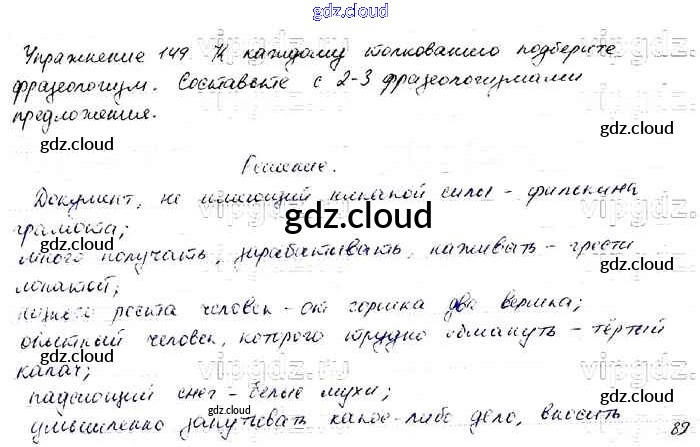 gdz.cloud
Упражнение 149 К каждому толкованию подберите
фразеологизм. Составьте с 2-3 фразеологизмами
предложения.
gdz.cloud
gdz.cloud
Решение.
Документ, не имеющий никакой силы - филькина
грамота;
gdz.cloud
много получать, зарабатывать, наживать - грести
лопатой;
низкого роста человек - от горшка два вершка;
опытный человек, которого трудно обмануть - тёртый
калач;
gdz.cloud
gdz.cloud
падающий снег - белые мухи;
gdz.cloud
умышленно запутывать какое-либо дело, вносить
89